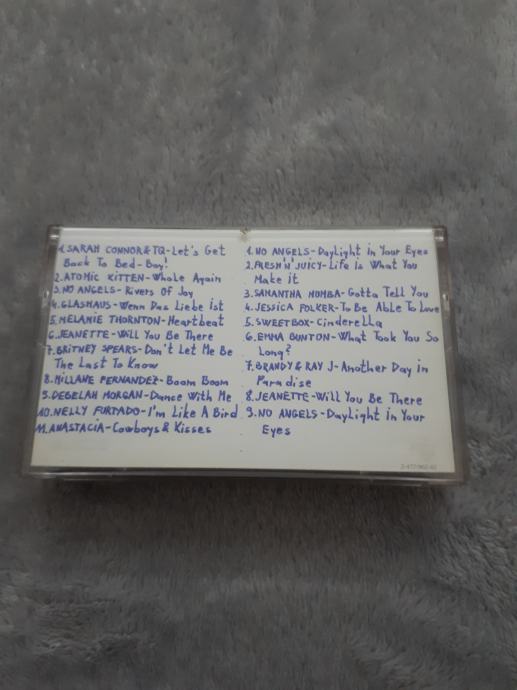 1. SARAH CONNOR & TQ - Let's Get
Back To Bed - Boy!
2. ATOMIC KITTEN - Whole Again
3. NO ANGELS - Rivers Of Joy
4. GLASHAUS - Wenn Das Liebe ist
5. MELANIE THORNTON - Heartbeat
6. JEANETTE - Will You Be There
7. BRITNEY SPEARS - Don't Let Me Be
The Last To Know
8. MILLANE FERNANDEZ - Boom Boom
9. DEBELAH MORGAN - Dance With Me
10. NELLY FURTADO - I'm Like A Bird
11. ANASTACIA - Cowboys & Kisses
1. NO ANGELS - Daylight in Your Eyes
2. FRESH'N'JUICY - Life is What You
Make it
3. SAMANTHA MUMBA - Gotta Tell You
4. JESSICA FOLKER - To Be Able To Love
5. SWEETBOX - Cinderella
6. EMMA BUNTON - What Took You So
Long?
7. BRANDY & RAY J - Another Day in
Paradise
8. JEANETTE - Will You Be There
9. NO ANGELS - Daylight in Your
Eyes